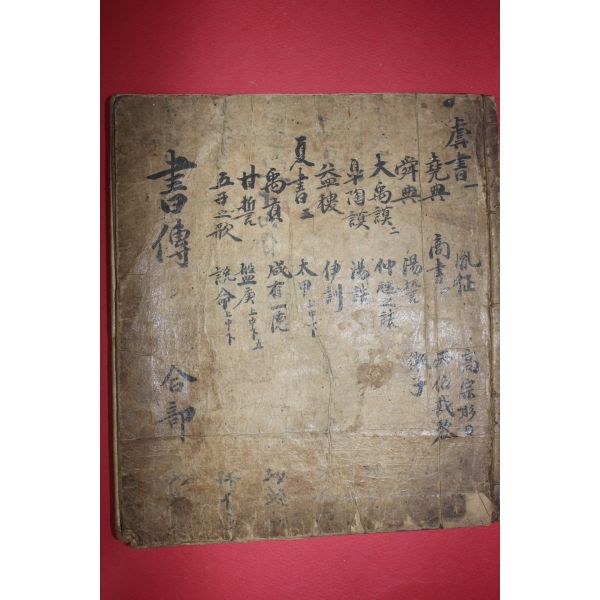 虞書一
堯典
舜典
大禹謨二
皐陶謨
益稷
夏書三
禹貢
甘誓
五子之歌
胤征
商書
湯誓
仲虺之誥
湯誥
伊訓
太甲上中下
咸有一德
盤庚上中下
說命上中下
高宗肜日
西伯戡黎
微子
書傳
合部